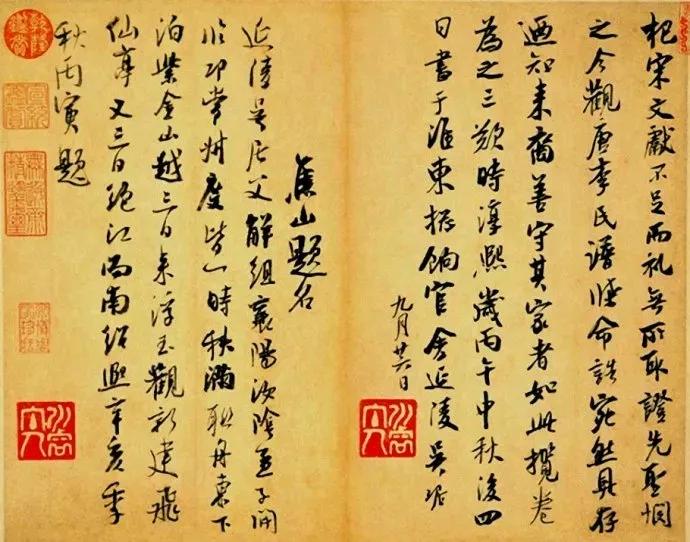 杞宋文獻不足而礼無所取證先聖憫
之今觀唐李氏譜牒命誥宛然具存
迺知来裔善守其家者如此攬卷
為之三歎時淳熙歲丙午中秋後四
日書于淮東揔餉官舍延陵吴琚
九月廿六日
焦山題名
延陵吴居父解組襄陽汝陰孟子開
常州度皆一時秩滿聯舟東下
泊紫金山越三日来浮玉觀新建飛
仙亭又三日絶江而南紹熙辛亥季
秋丙寅題
乾隆鑑賞